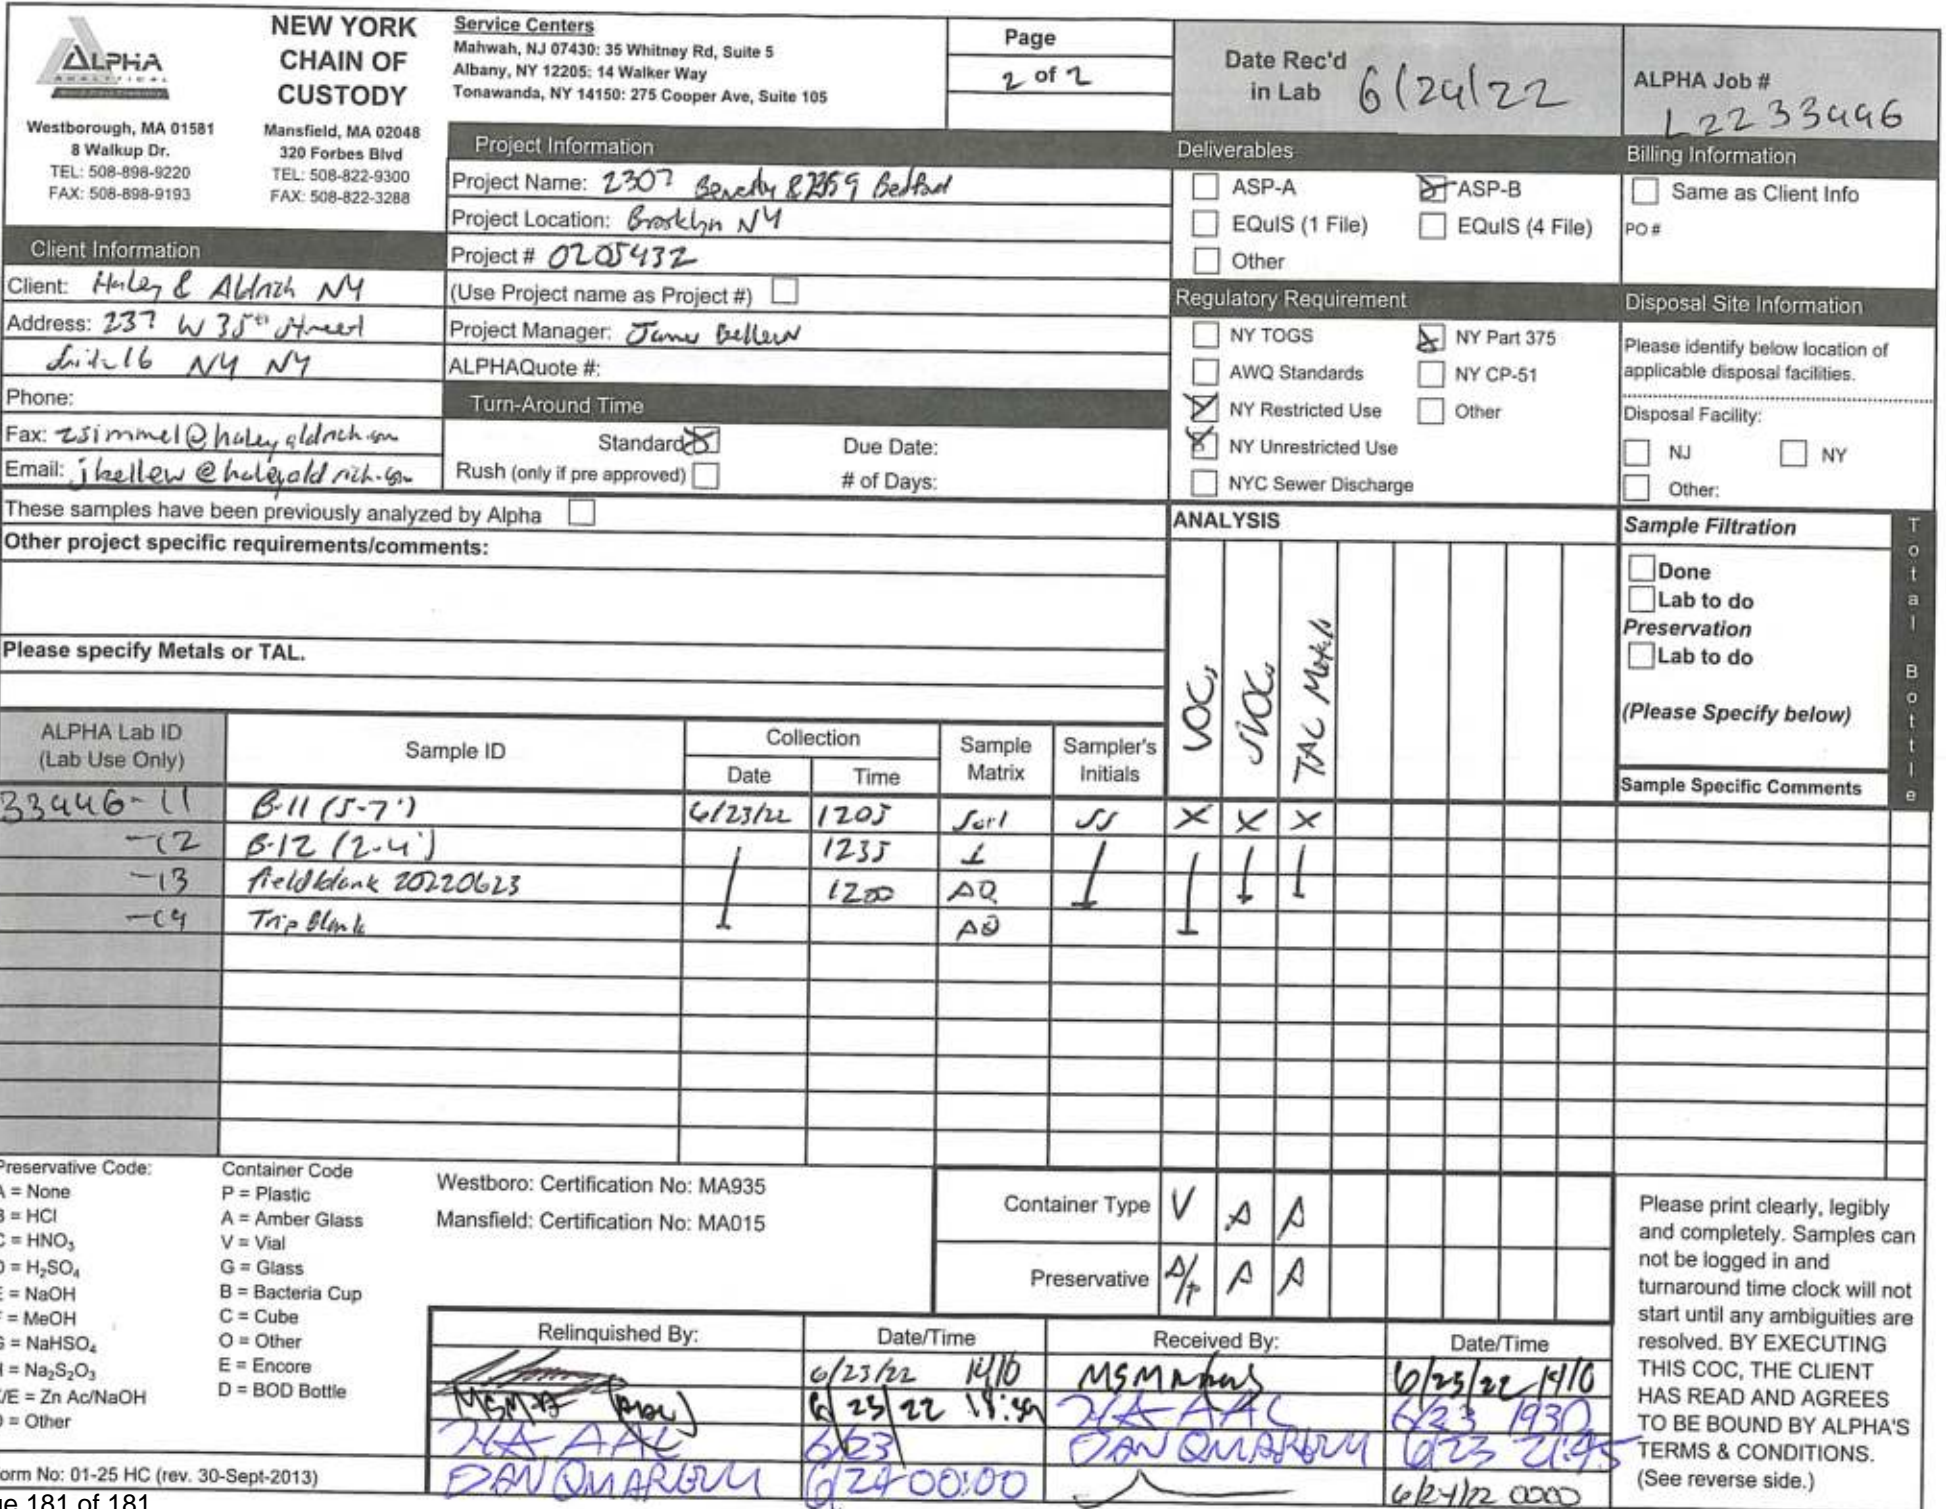 ALPHA
ANALYTICAL
NEW YORK
CHAIN OF
CUSTODY
Westborough, MA 01581
8 Walkup Dr.
TEL: 508-898-9220
FAX: 508-898-9193
Mansfield, MA 02048
320 Forbes Blvd
TEL: 508-822-9300
FAX: 508-822-3288
Service Centers
Mahwah, NJ 07430: 35 Whitney Rd, Suite 5
Albany, NY 12205: 14 Walker Way
Tonawanda, NY 14150: 275 Cooper Ave, Suite 105
Page
2 of 2
Date Rec'd
in Lab 6/24/22
ALPHA Job #
L2233446
Client Information
Client: Haley & Aldrich NY
Address: 237 W 35th Street
Suite 16 NY NY
Phone:
Fax: zsimmel@haleyaldrich.com
Email: jbellew@haleyaldrich.com
Project Information
Project Name: 2307 Beverly & 2359 Bedford
Project Location: Brooklyn NY
Project # 0205432
(Use Project name as Project #)
Project Manager: James Bellew
ALPHAQuote #:
Turn-Around Time
Standard Due Date:
Rush (only if pre approved) # of Days:
Deliverables
ASP-A ASP-B
EQuIS (1 File) EQuIS (4 File)
Other
Regulatory Requirement
NY TOGS NY Part 375
AWQ Standards NY CP-51
NY Restricted Use Other
NY Unrestricted Use
NYC Sewer Discharge
Billing Information
Same as Client Info
PO #
Disposal Site Information
Please identify below location of
applicable disposal facilities.
Disposal Facility:
NJ NY
Other:
These samples have been previously analyzed by Alpha
Other project specific requirements/comments:
Please specify Metals or TAL.
ANALYSIS
VOCs
SVOCs
TAL Metals
Sample Filtration
Done
Lab to do
Preservation
Lab to do
(Please Specify below)
Total Bottle
ALPHA Lab ID
(Lab Use Only)
Sample ID
Collection
Date Time
Sample
Matrix
Sampler's
Initials
Sample Specific Comments
33446-11 B-11 (5-7') 6/23/22 1205 Soil SS X X X
-12 B-12 (2-4') 1235
-13 fieldblank 20220623 1200 AQ
-14 Trip Blank AQ
Preservative Code:
A = None
B = HCl
C = HNO3
D = H2SO4
E = NaOH
F = MeOH
G = NaHSO4
H = Na2S2O3
K/E = Zn Ac/NaOH
O = Other
Container Code
P = Plastic
A = Amber Glass
V = Vial
G = Glass
B = Bacteria Cup
C = Cube
O = Other
E = Encore
D = BOD Bottle
Westboro: Certification No: MA935
Mansfield: Certification No: MA015
Container Type V A A
Preservative A/F A A
Relinquished By: Date/Time Received By: Date/Time
6/23/22 1410 6/23/22 1410
6/23/22 6/23 1930
6/23 6/23 21:45
6/24 00:00 6/24/22 0000
Please print clearly, legibly
and completely. Samples can
not be logged in and
turnaround time clock will not
start until any ambiguities are
resolved. BY EXECUTING
THIS COC, THE CLIENT
HAS READ AND AGREES
TO BE BOUND BY ALPHA'S
TERMS & CONDITIONS.
(See reverse side.)
Form No: 01-25 HC (rev. 30-Sept-2013)
181 of 181